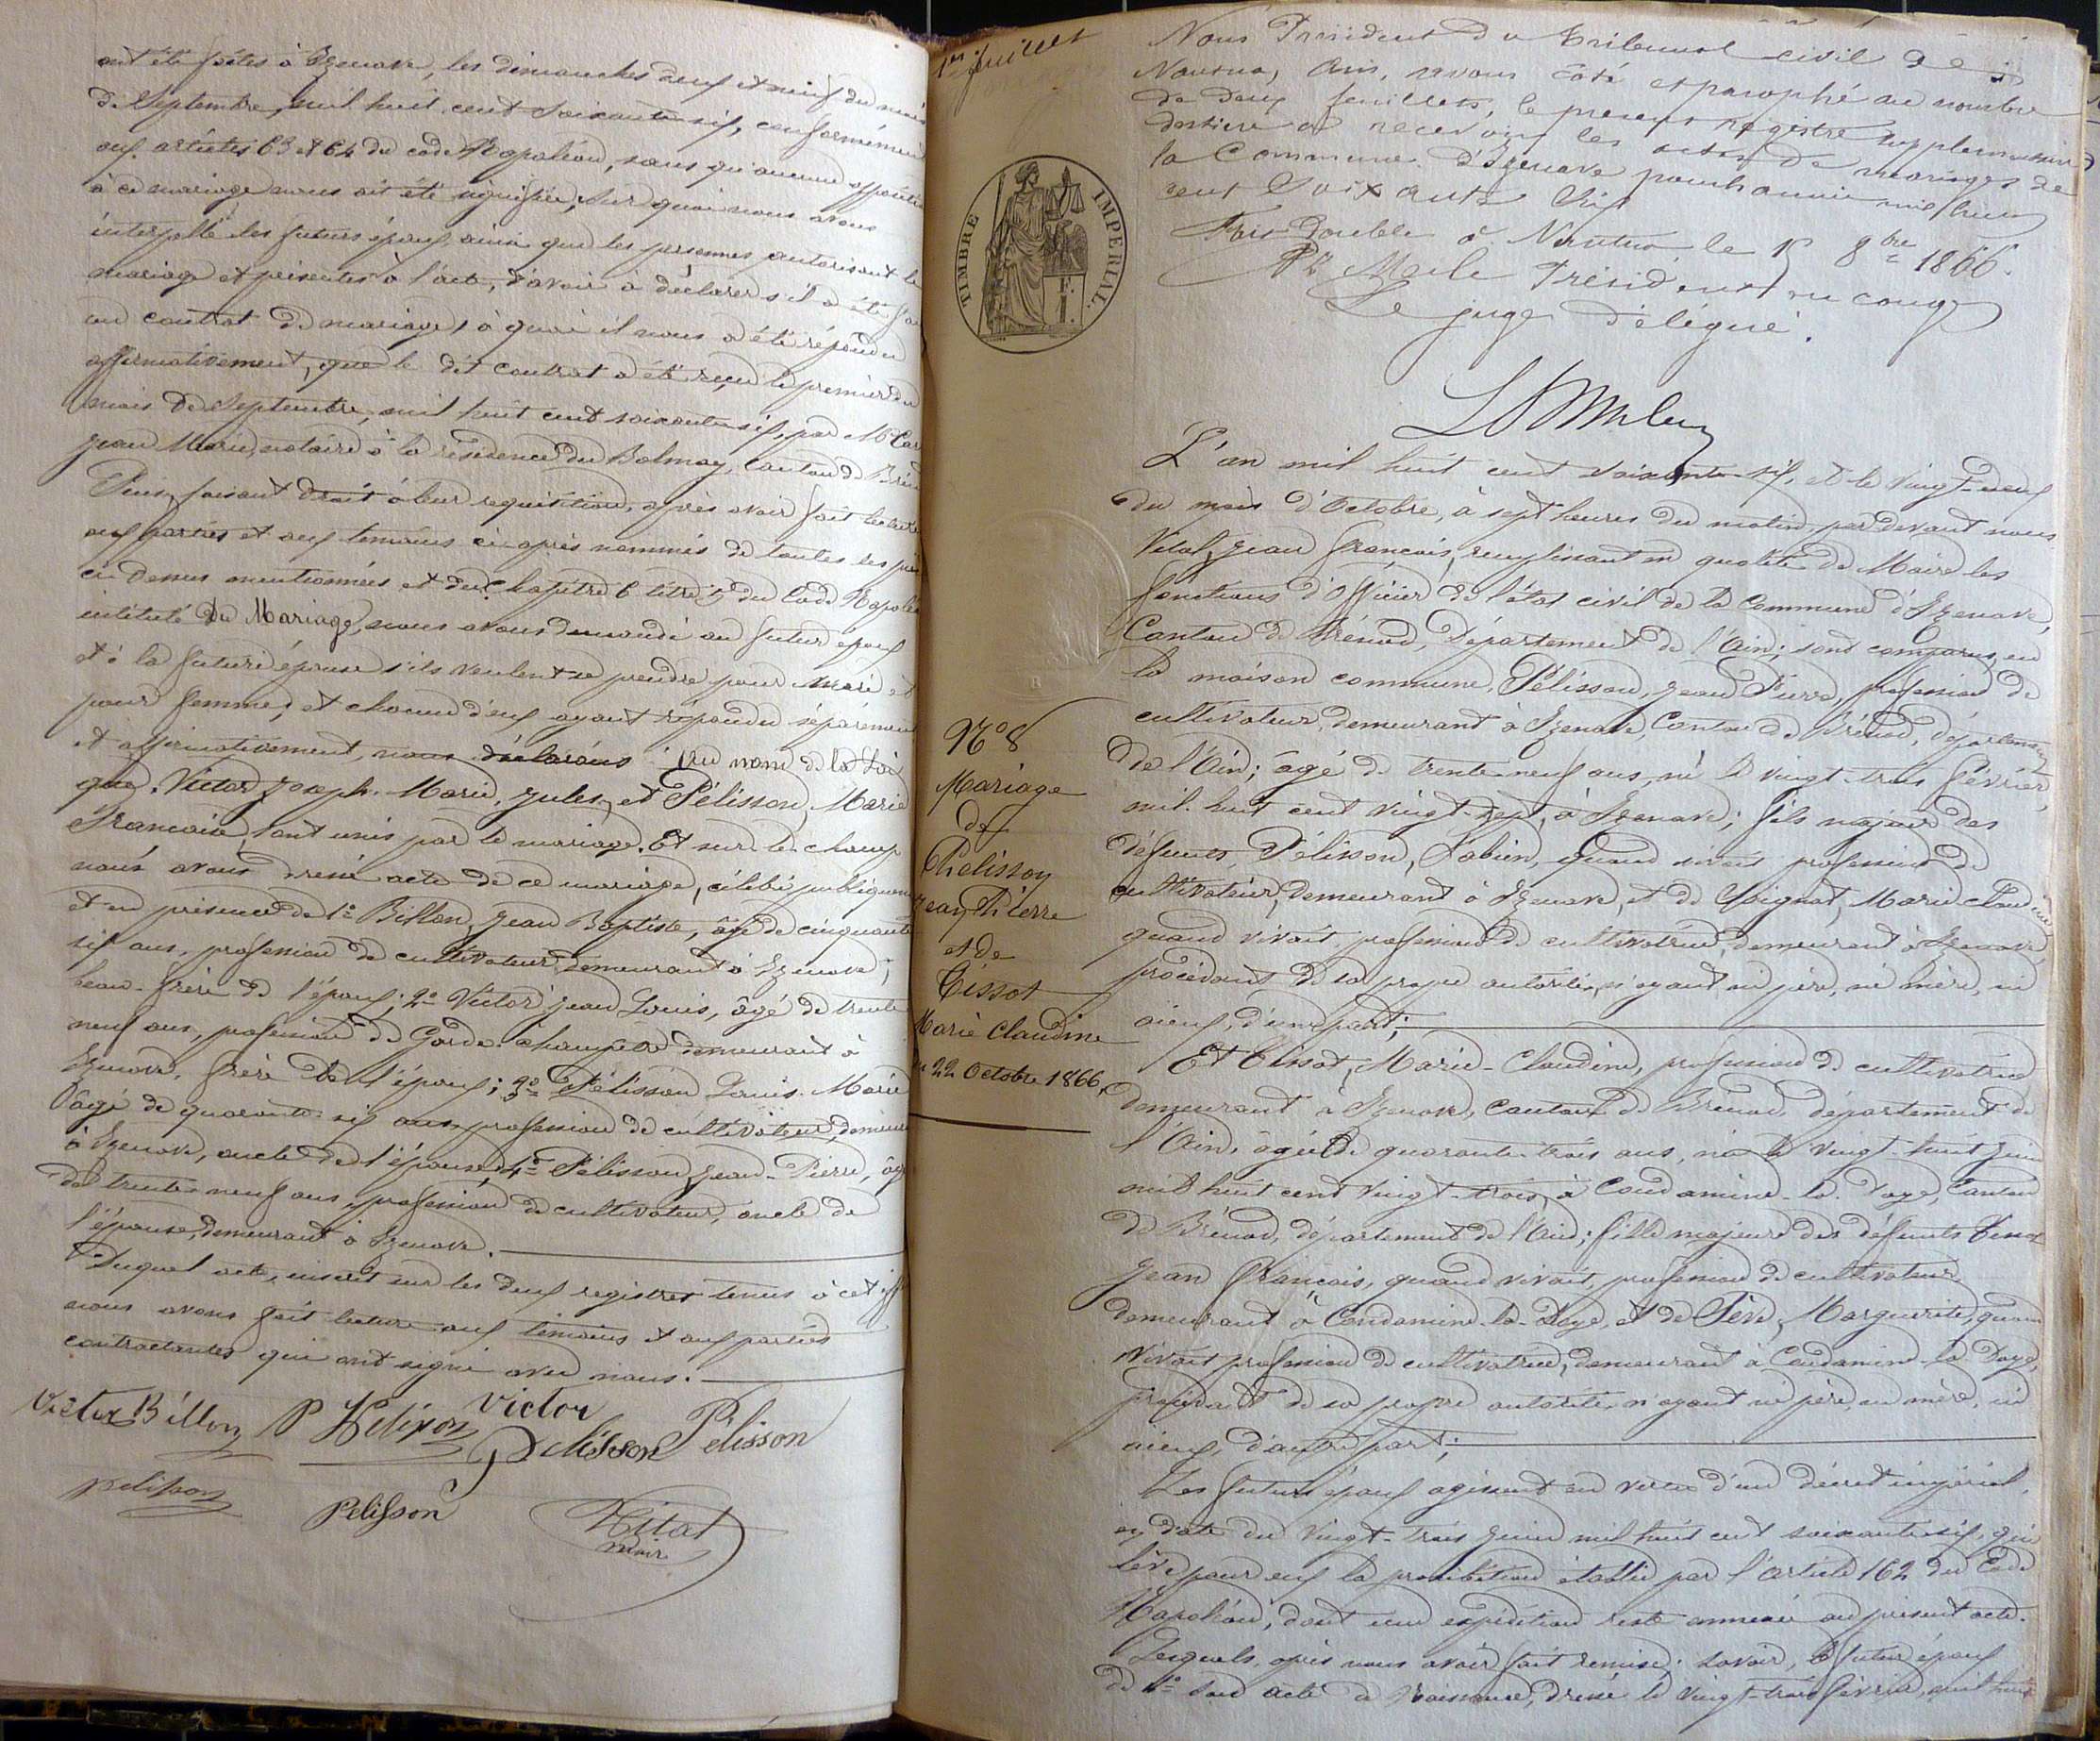 ont été faites à Izenave, les dimanches deux et neuf du mois
de Septembre, mil huit cent soixante-six, conformément
aux articles 63 et 64 du code Napoléon, sans qu'aucune opposition
à ce mariage nous ait été signifiée; sur quoi nous avons
interpellé les futurs époux, ainsi que les personnes autorisant le
mariage et présentes à l'acte, d'avoir à déclarer s'il a été fait
un contrat de mariage, à quoi il nous a été répondu
affirmativement, que le dit contrat a été reçu le premier du
mois de Septembre, mil huit cent soixante six, par Me
Jean Marie, notaire à la résidence du Balmay, Canton de
Puis, faisant droit à leur requisition, après avoir fait lecture
aux parties et aux témoins ci-après nommés de toutes les
ci-dessus mentionnées et du Chapitre 6 titre 5e du Code Napoléon
intitulé Du Mariage, nous avons demandé au futur époux
et à la future épouse s'ils veulent se prendre pour mari et
pour femme; et chacun d'eux ayant répondu séparément
et affirmativement, nous déclarons au nom de la Loi
que, Victor, Joseph-Marie, Jules, et Pélisson, Marie
Françoise, sont unis par le mariage. Et sur-le-champ
nous avons dressé acte de ce mariage, célébré publiquement
et en présence de 1º Billon, Jean Baptiste, âgé de cinquante
six ans, profession de cultivateur, demeurant à Izenave,
beau-frère de l'époux; 2º Victor, Jean Louis, âgé de trente
neuf ans, profession de Garde-champêtre demeurant à
Izenave, frère de l'époux; 3º Pélisson Louis-Marie
âgé de quarante-six ans, profession de cultivateur, demeurant
à Izenave, oncle de l'épouse; 4º Pélisson, Jean-Pierre, âgé
de trente-neuf ans, profession de cultivateur, oncle de
l'épouse, demeurant à Izenave.
Duquel acte, inscrit sur les deux registres tenus à cet
nous avons fait lecture aux témoins et aux parties
contractantes qui ont signé avec nous.
Victor Billon P victor
Pelisson Pelisson
pelisson
Pelisson Vital
maire
1er feuillet
TIMBRE IMPERIAL
Nº 8
Mariage
de
Phelisson
Jean Pierre
et de
Tissot
Marie Claudine
22 Octobre 1866
Nous Président du tribunal civil de
Nantua, Ain, avons coté et paraphé au nombre
de deux feuillets, le présent registre supplémentaire
destiné à recevoir les actes de mariages de
la Commune d'Izenave pour l'année mil huit
cent Soixante Six
Fait Double à Nantua, le 8bre 1866.
Président en congé
Le juge délégué.
L'an mil huit cent soixante-six, et le vingt-deux
du mois d'Octobre, à sept heures du matin, par devant nous
Vital, Jean François, remplissant en qualité de Maire les
fonctions d'Officier de l'état civil de la Commune d'Izenave,
Canton de Brénod, Département de l'Ain; sont comparus en
la maison commune, Pélisson, Jean Pierre, profession de
cultivateur, demeurant à Izenave, Canton de Brénod, département
de l'Ain; âgé de trente-neuf ans, né le vingt-trois Février,
mil-huit cent vingt-sept, à Izenave; fils majeur des
défunts, Pélisson, Fabien, quand vivait profession de
cultivateur, demeurant à Izenave, et de Marie Claudine
quand vivait profession de cultivatrice, demeurant à Izenave,
procédant de sa propre autorité, n'ayant ni père, ni mère, ni
aieux, d'une part;
Et Tissot, Marie-Claudine, profession de cultivatrice
demeurant à Izenave, canton de Brénod, département de
l'Ain, âgée de quarante-trois ans, née le vingt-huit Juin
mil huit cent vingt-trois, à Condamine-la-Doye, Canton
de Brénod, département de l'Ain; fille majeure des défunts Tissot
Jean François, quand vivait, profession de cultivateur,
demeurant à Condamine-la-Doye, et de Père, Marguerite, quand
vivait profession de cultivatrice, demeurant à Condamine-la-Doye,
procédant de sa propre autorité, n'ayant ni père, ni mère, ni
aieux, d'autre part;
Les futurs époux agissant en vertu d'un décret impérial,
en date du vingt-trois Juin mil huit cent soixante-six, qui
lève pour eux la prohibition établie par l'article 162 du Code
Napoléon, dont une expédition reste annexée au présent acte.
Lesquels, après nous avoir fait remise: savoir, le futur époux
de 1º son acte de Naissance, dressé le vingt-trois février, mil huit